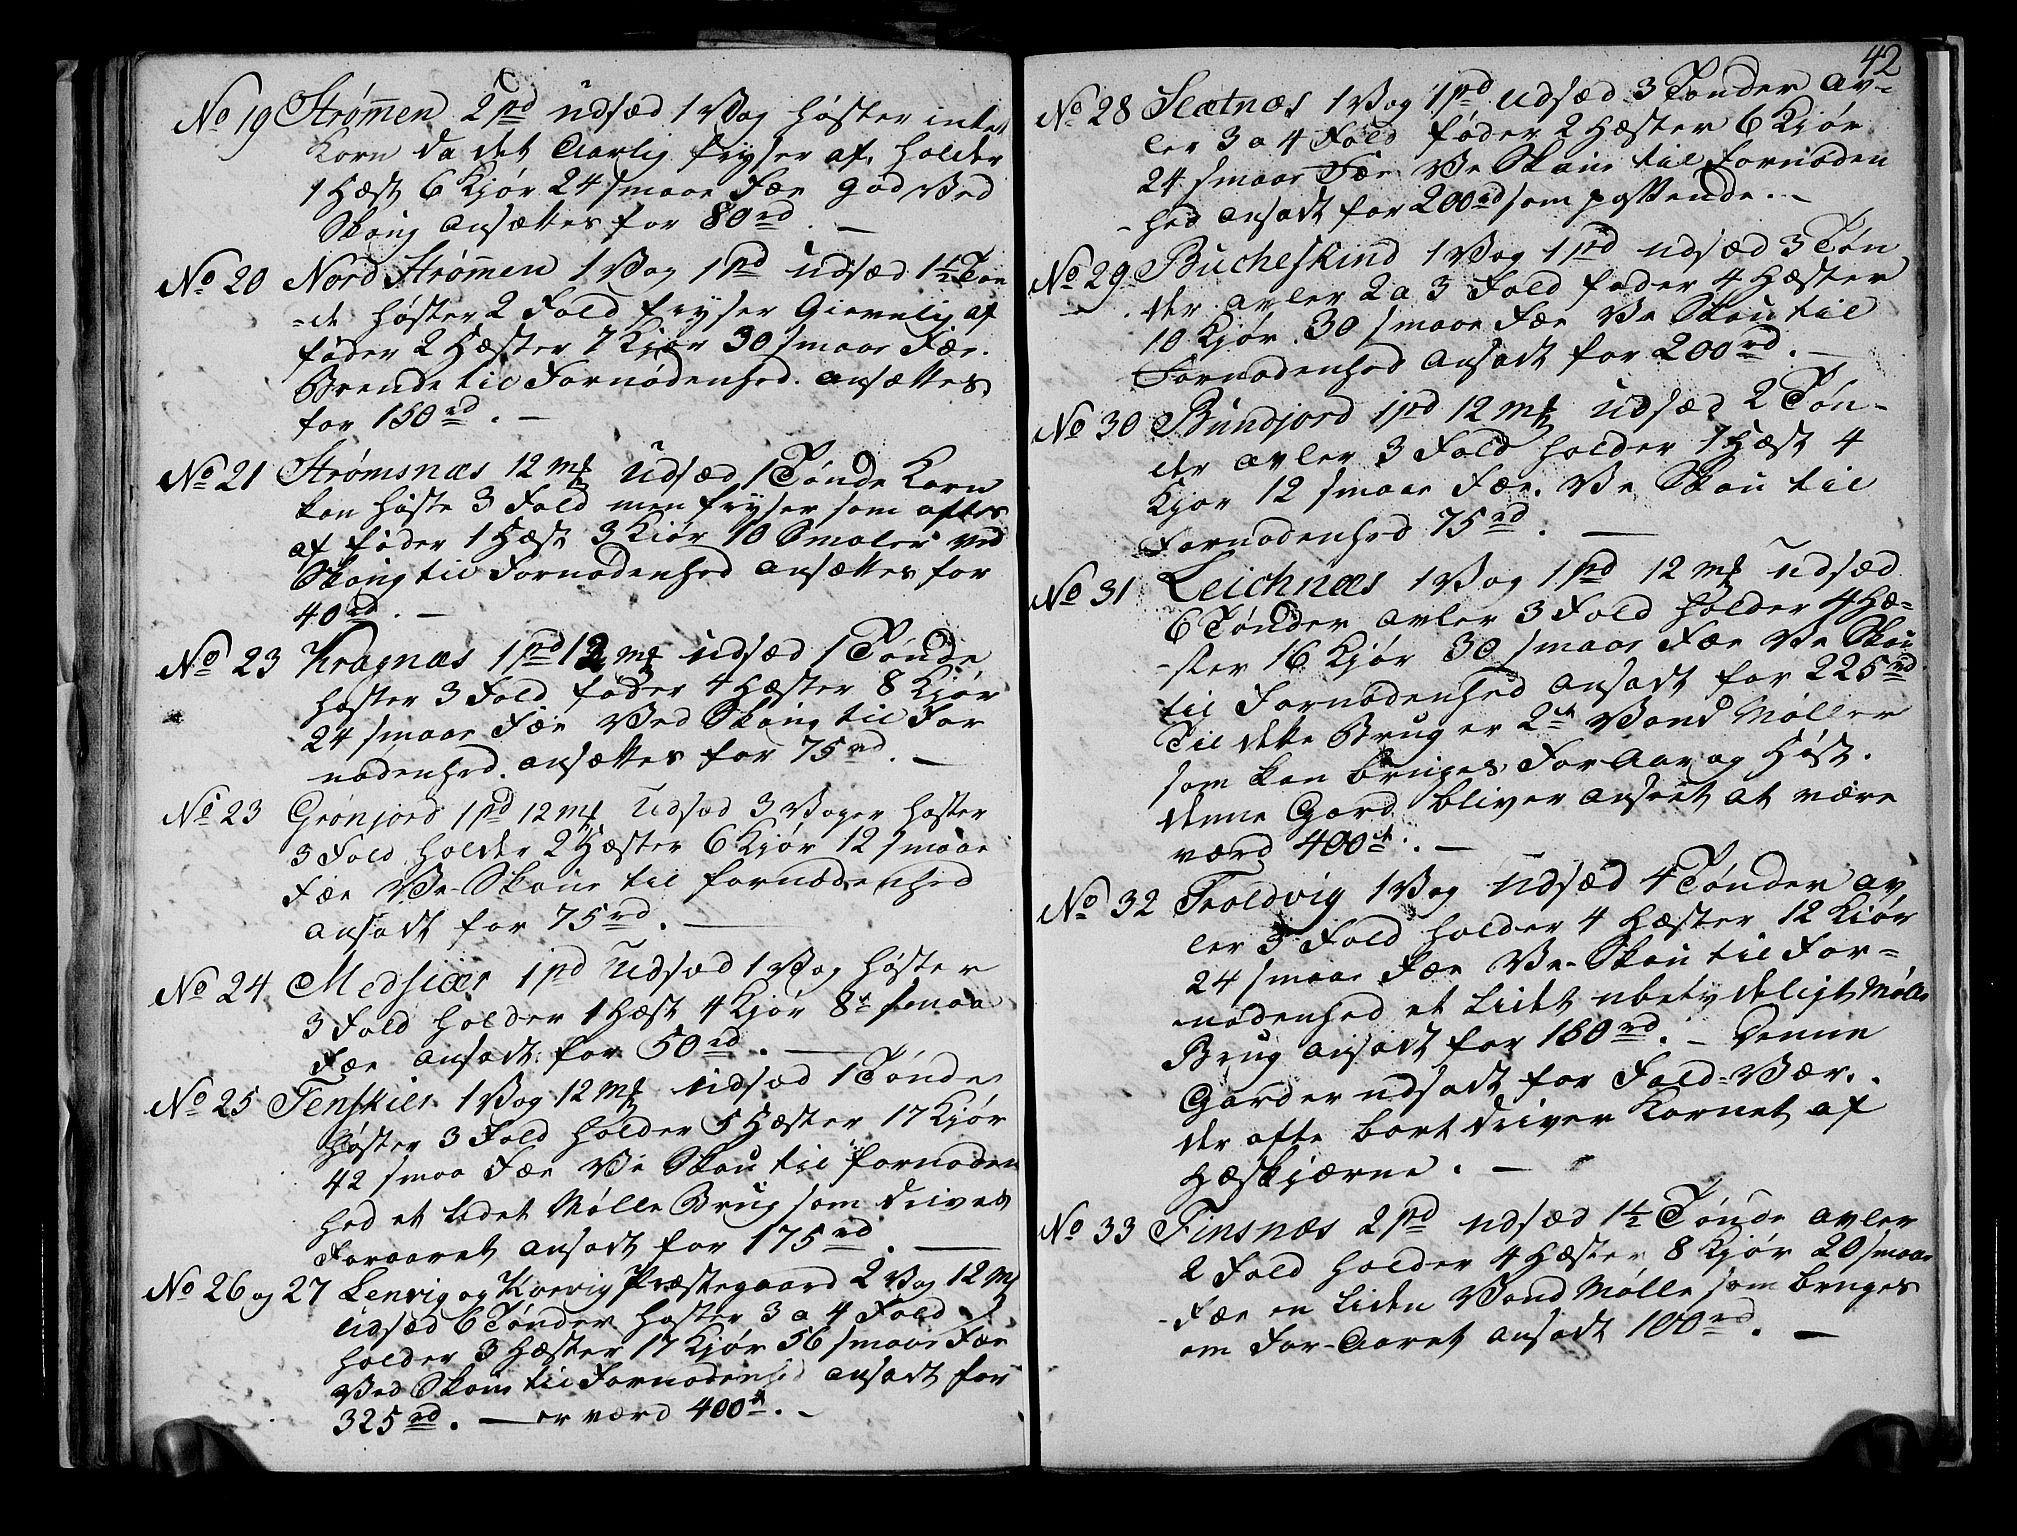 No 19 Strømen 2 pd udsæd 1 Vog høster intet
Korn da det Aarlig fryser af, holder
1 Hæst 6 Kjør 24 smaae Fæe god Ved
Skoug ansættes for 80 rd. —
No 20 Nord Strømen 1 Vog 1 pd udsæd 1½ Tøn
-de høster 2 Fold fryser Gievnlig af
føder 2 Hæster 7 Kjør 30 smaae Fæe.
Brende til Fornødenhed. ansættes
for 150 rd. —
No 21 Strømsnæs 12 mk udsæd 1 Tønde Korn
kan høste 3 Fold men fryser som oftes
af føder 1 Hæst 3 Kiør 10 Smaler ved
Skoug til Fornødenhed ansættes for
40 rd. —
No 23 Kragnæs 1 pd 12 mk udsæd 1 Tønde
høster 3 Fold føder 4 Hæster 8 Kjør
24 smaae Fæe Ved Skoug til For
nødenhed. ansættes for 75 rd. —
No 23 Grønjord 1 pd 12 mk udsæd 3 Voger høster
3 Fold, holder 2 Hæster 6 Kjør 12 smaae
Fæe Ve-Skoue til fornødenhed
ansadt for 75 rd. —
No 24 Medfiær 1 pd udsæd 1 Vog høster
3 Fold holder 1 Hæst 4 Kjør 8 smaa
Fæe ansadt for 50 rd. —
No 25 Tenskier 1 Vog 12 mk udsæd 1 Tønde
høster 3 Fold holder 5 Hæster 17 Kjør
42 smaa Fæe Ve Skou til fornøden
hed et Lidet Mølle Brug som drives
Foraaret ansadt for 175 rd. —
No 26 og 27 Lenvig og Koevig Præstegaard 2 Vog 12 mk
udsæd 6 Tønder høster 3 a 4 Fold
holder 3 Hæster 17 Kjør 56 smaae Fæe
Ved Skou til Fornødenhed ansadt for
325 rd. — er værd 400 rd. —
42
No 28 Slætnæs 1 Vog 1 pd udsæd 3 Tønder av-
ler 3 a 4 Fold føder 2 Hæster 6 Kjør
24 smaae Fæe Ve Skoue til Fornøden
-hed ansadt for 200 rd som passende. —
No 29 Bucheskind 1 Vog 1 pd udsæd 3 Tøn
der avler 2 a 3 Fold føder 4 Hæster
10 Kjør. 30 smaae Fæe Ve Skou til
Fornødenhed ansadt for 200 rd. —
No 30 Bundjord 1 pd 12 mk udsæd 2 Tøn-
der avler 3 Fold holder 1 Hæst 4
Kjør 12 smaae Fæe. Ve Skou til
Fornødenhed 75 rd. —
No 31 Leichnæs 1 Vog 1 pd 12 mk udsæd
6 Tønder avler 3 Fold holder 4 Hæ-
-ster 16 Kjør 30 smaae Fæe Ve Skou
til Fornødenhed ansadt for 225 rd
Til dette Brug er 2de Vand Møller
som kan bruges For Aar og Høst.
denne Gard bliver anseet at være
værd 400 rd. —
No 32 Troldvig 1 Vog udsæd 4 Tønder av
ler 3 Fold holder 4 Hæster 12 Kiør
24 smaae Fæe Ve-Skou til For-
nødenhed et Lidet ubetydeligt Mølle
Brug ansadt for 160 rd. — Denne
Gard er udsadt for Fald-Vær.
der ofte bort driver Kornet af
Hæskjærne. —
No 33 Finsnæs 2 pd udsæd 1½ Tønde avler
2 Fold holder 4 Hæster 8 Kjør 20 smaae
-Fæe en Liden Vand Mølle som bruges
om For-Aaret ansadt 100 rd. —